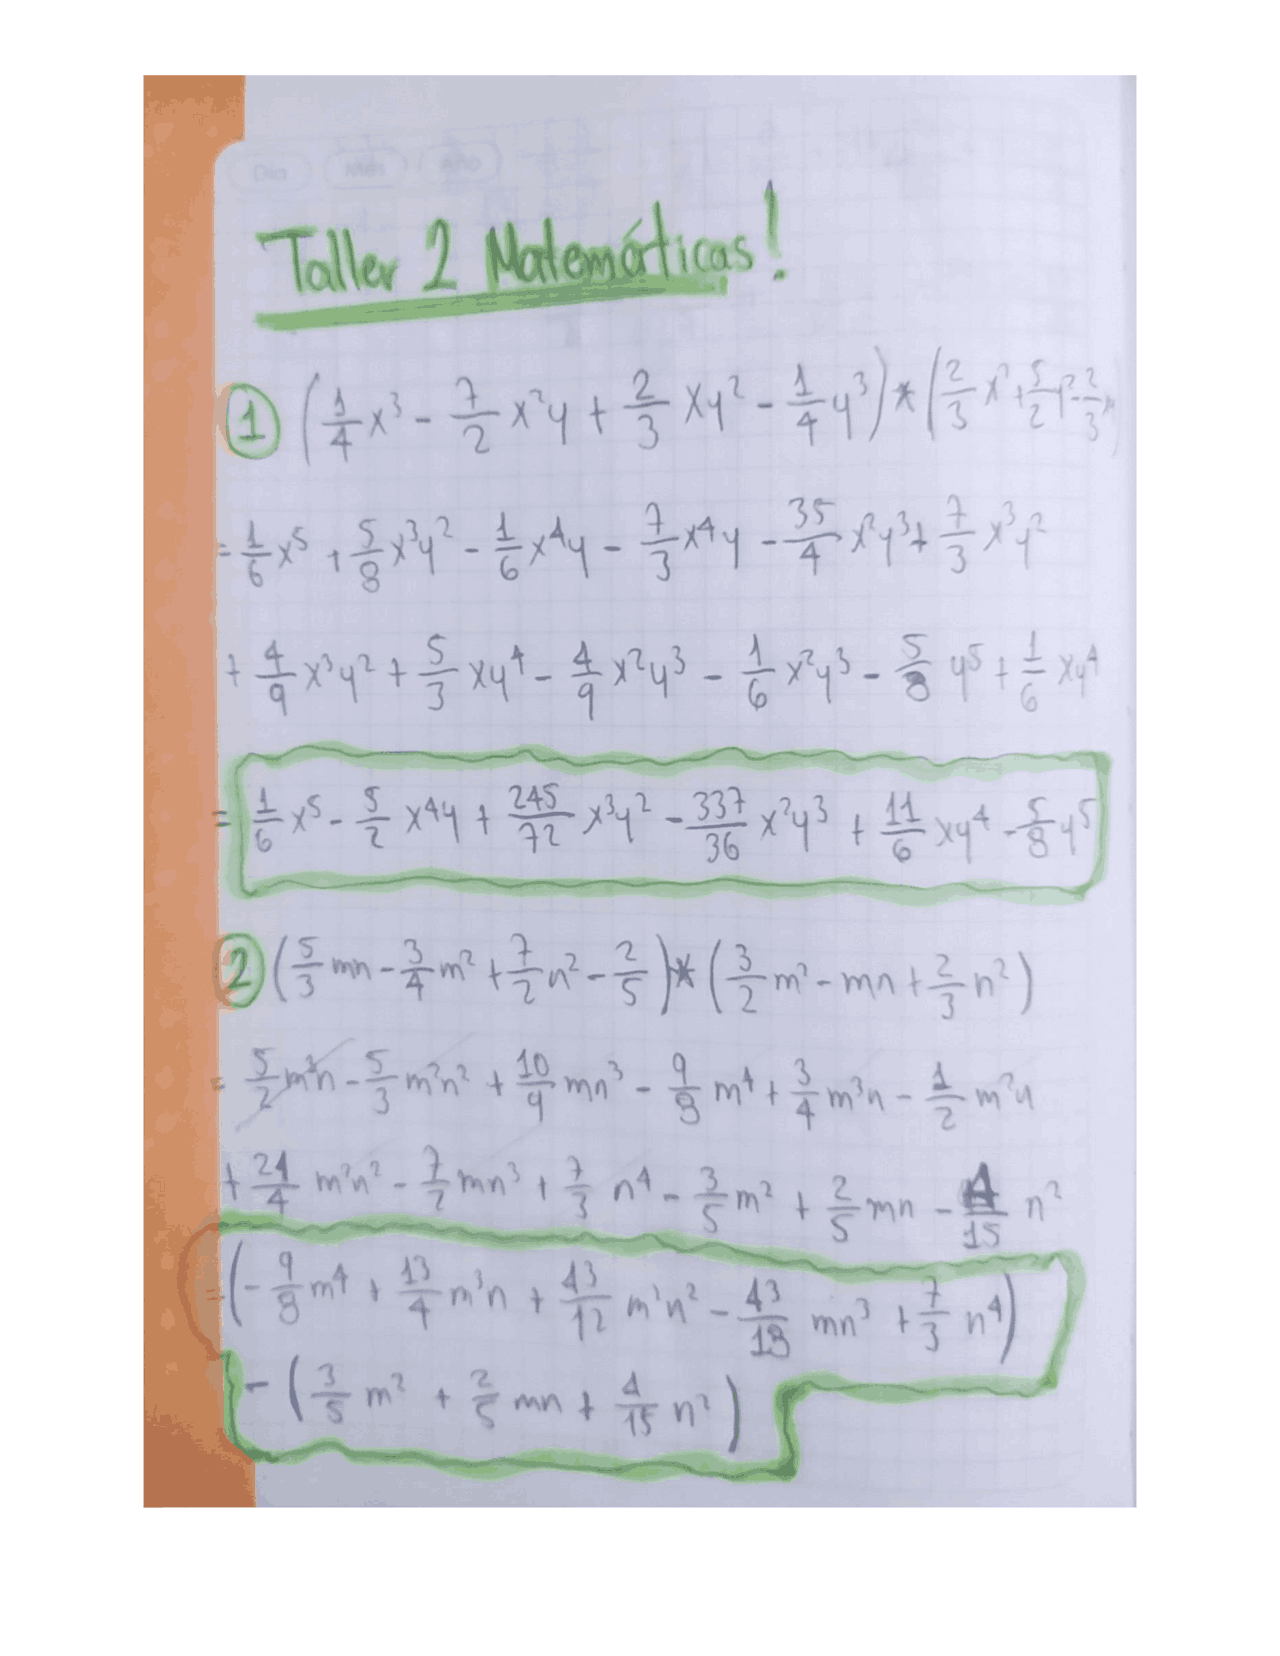 Dia Mes Año
Taller 2 Matemáticas!
① (1/4 x³ - 7/2 x²y + 2/3 xy² - 1/4 y³) * (2/3 x² + 5/2 y² - 2/3
= 1/6 x⁵ + 5/8 x³y² - 1/6 x⁴y - 7/3 x⁴y - 35/4 x²y³ + 7/3 x³y²
+ 4/9 x³y² + 5/3 xy⁴ - 4/9 x²y³ - 1/6 x²y³ - 5/8 y⁵ + 1/6 xy⁴
= 1/6 x⁵ - 5/2 x⁴y + 245/72 x³y² - 337/36 x²y³ + 11/6 xy⁴ - 5/8 y⁵
② (5/3 mn - 3/4 m² + 7/2 n² - 2/5) * (3/2 m² - mn + 2/3 n²)
= 5/2 m³n - 5/3 m²n² + 10/9 mn³ - 9/8 m⁴ + 3/4 m³n - 1/2 m²n
+ 21/4 m²n² - 7/2 mn³ + 7/3 n⁴ - 3/5 m² + 2/5 mn - 4/15 n²
= (- 9/8 m⁴ + 13/4 m³n + 43/12 m²n² - 43/18 mn³ + 7/3 n⁴)
- (3/5 m² + 2/5 mn + 4/15 n²)